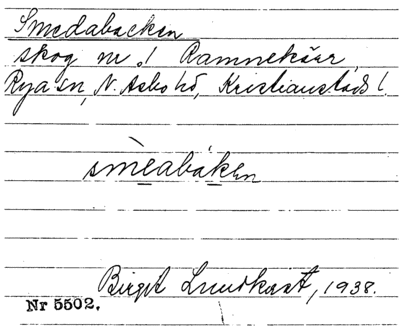 Smedabacken
skog nr 1 Ramnekärr,
Rya sn, N. Åsbo hd, Kristianstads l.
smèabáken
Birgit Lundkvist, 1938.
Nr 5502.